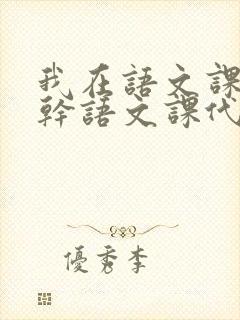 我在語文課
幹語文課代
優秀李